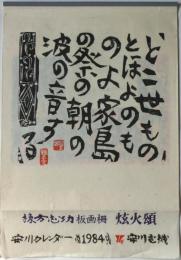 いとこ世もの
とほよのも
のよ家島
の祭の朝の
波の音す
る
棟方志功 板画柵 炫火頌
安川カレンダー 1984 安川電機